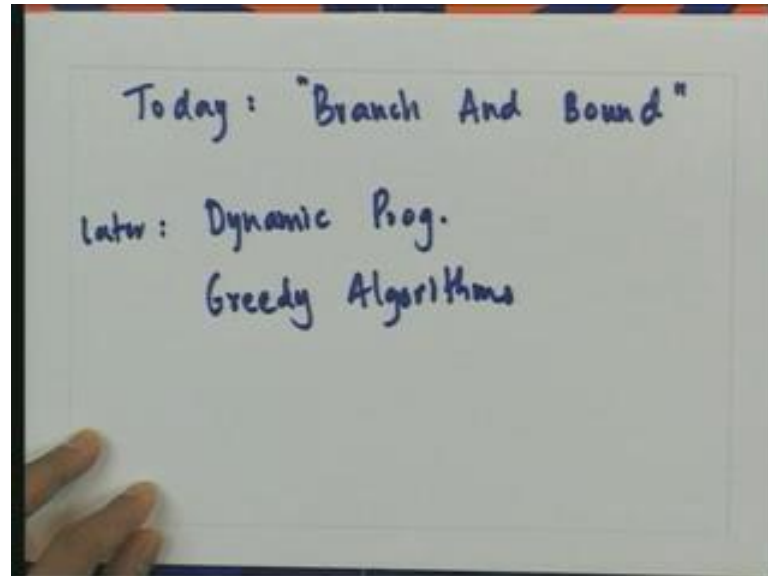 Today: "Branch And Bound"
Later: Dynamic Prog.
Greedy Algorithms